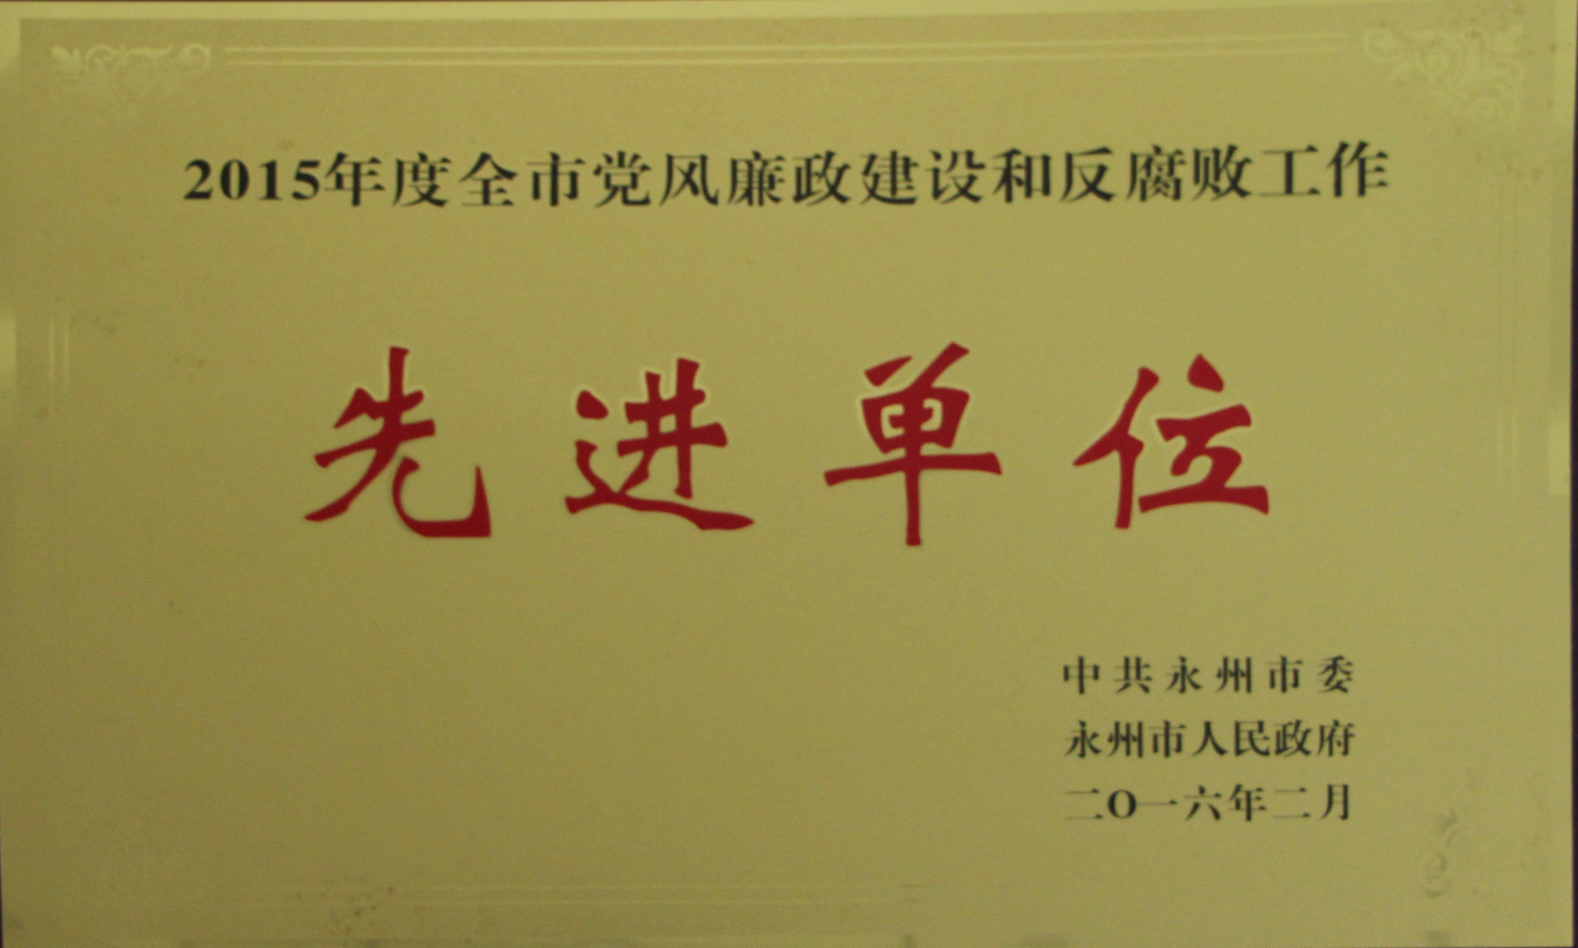 2015年度全市党风廉政建设和反腐败工作
先进单位
中共永州市委
永州市人民政府
二O一六年二月